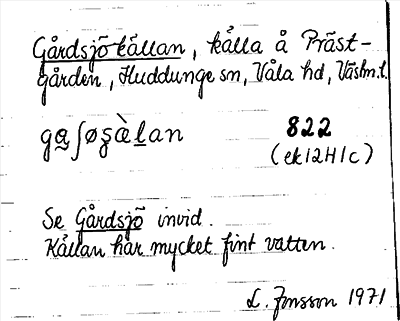 Gårdsjökällan, källa å Präst-
gården, Huddunge sn, Våla hd, Västm.l.
822
(ek 12H1c)
Se Gårdsjö invid.
Källan har mycket fint vatten.
L. Jonsson 1971